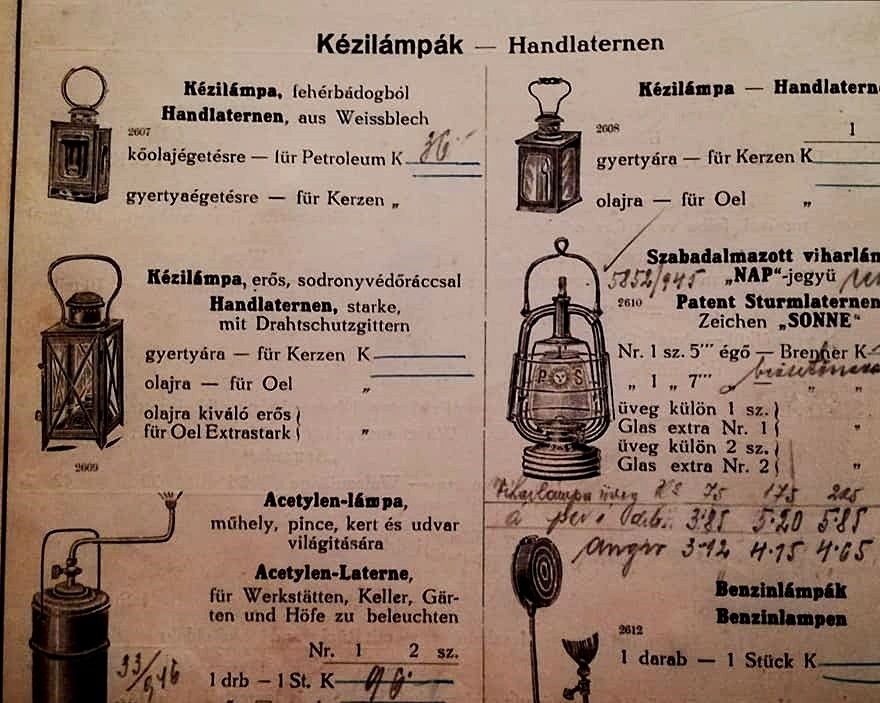 Kézilámpák — Handlaternen
Kézilámpa, fehérbádogból
Handlaternen, aus Weissblech
2607
kőolajégetésre — für Petroleum K 36
gyertyaégetésre — für Kerzen „
Kézilámpa, erős, sodronyvédőráccsal
Handlaternen, starke,
mit Drahtschutzgittern
gyertyára — für Kerzen K
olajra — für Oel „
olajra kiváló erős }
für Oel Extrastark } „
2609
Acetylen-lámpa,
műhely, pince, kert és udvar
világitására
Acetylen-Laterne,
für Werkstätten, Keller, Gär-
ten und Höfe zu beleuchten
Nr. 1 2 sz.
33/946
1 drb — 1 St. K 90
Kézilámpa — Handlatern
2608
1
gyertyára — für Kerzen K
olajra — für Oel „
Szabadalmazott viharlám
5852/945 „NAP“-jegyü
2610 Patent Sturmlaternen
Zeichen „SONNE“
Nr. 1 sz. 5''' égő — Brenner K
„ 1 „ 7''' „ — „ „
üveg külön 1 sz. }
Glas extra Nr. 1 } „
üveg külön 2 sz. }
Glas extra Nr. 2 } „
P S
Viharlámpa üveg K S 75 175 225
á per 1 drb. 3·85 5·20 5·85
3·12 4·15 4·65
Benzinlámpák
Benzinlampen
2612
1 darab — 1 Stück K